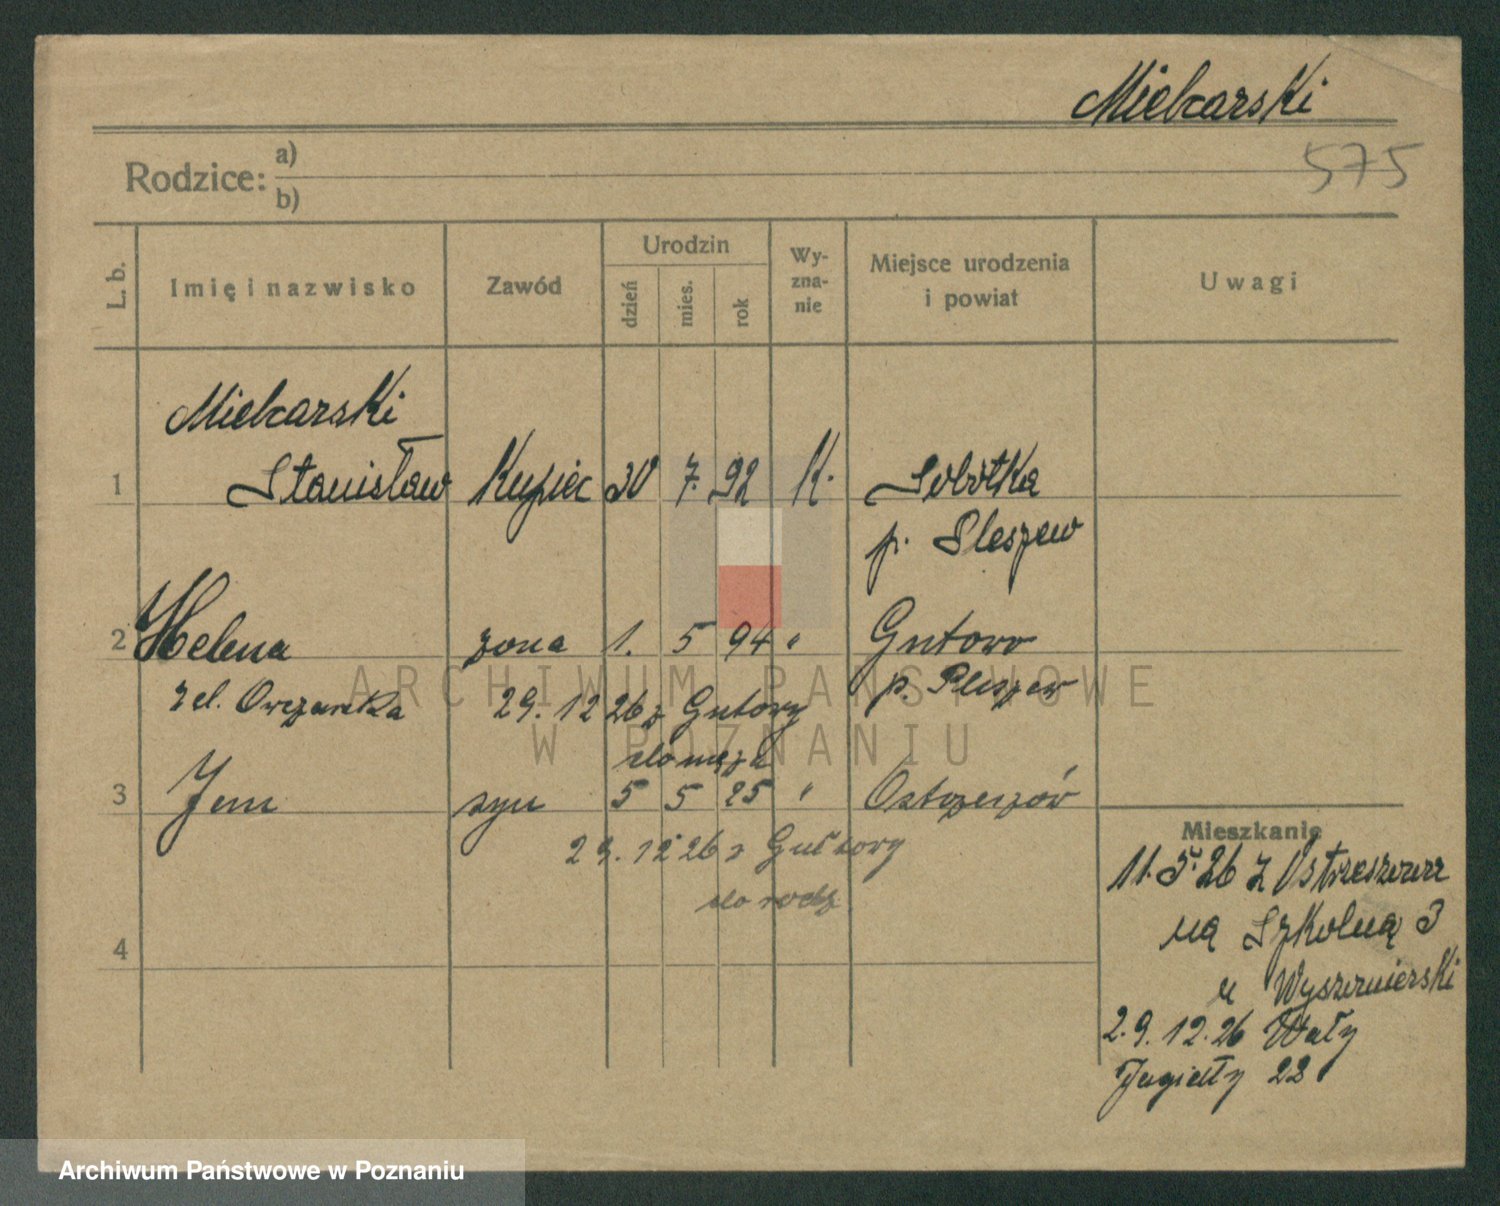 Mielcarski
575
Rodzice: a)
b)
L. b.
Imię i nazwisko
Zawód
Urodzin
dzień
mies.
rok
Wy-
zna-
nie
Miejsce urodzenia
i powiat
Uwagi
Mielcarski
1 Stanisław Kupiec 30 7. 92 K. Sobótka
p. Pleszew
2 Helena żona 1. 5 94 " Gutowo
p. Pleszew
zd. Owczarska 29. 12 26 z Gutowy
do męża
3 Jan syn 5 5 25 " Ostrzeszów
29. 12 26 z Gutowy
do rodz.
4
Mieszkanie
11. 5. 26 z
na Szkolną 3
u
29. 12. 26 Wały
Jagiełły 22
ARCHIWUM PAŃSTWOWE
W POZNANIU
Archiwum Państwowe w Poznaniu